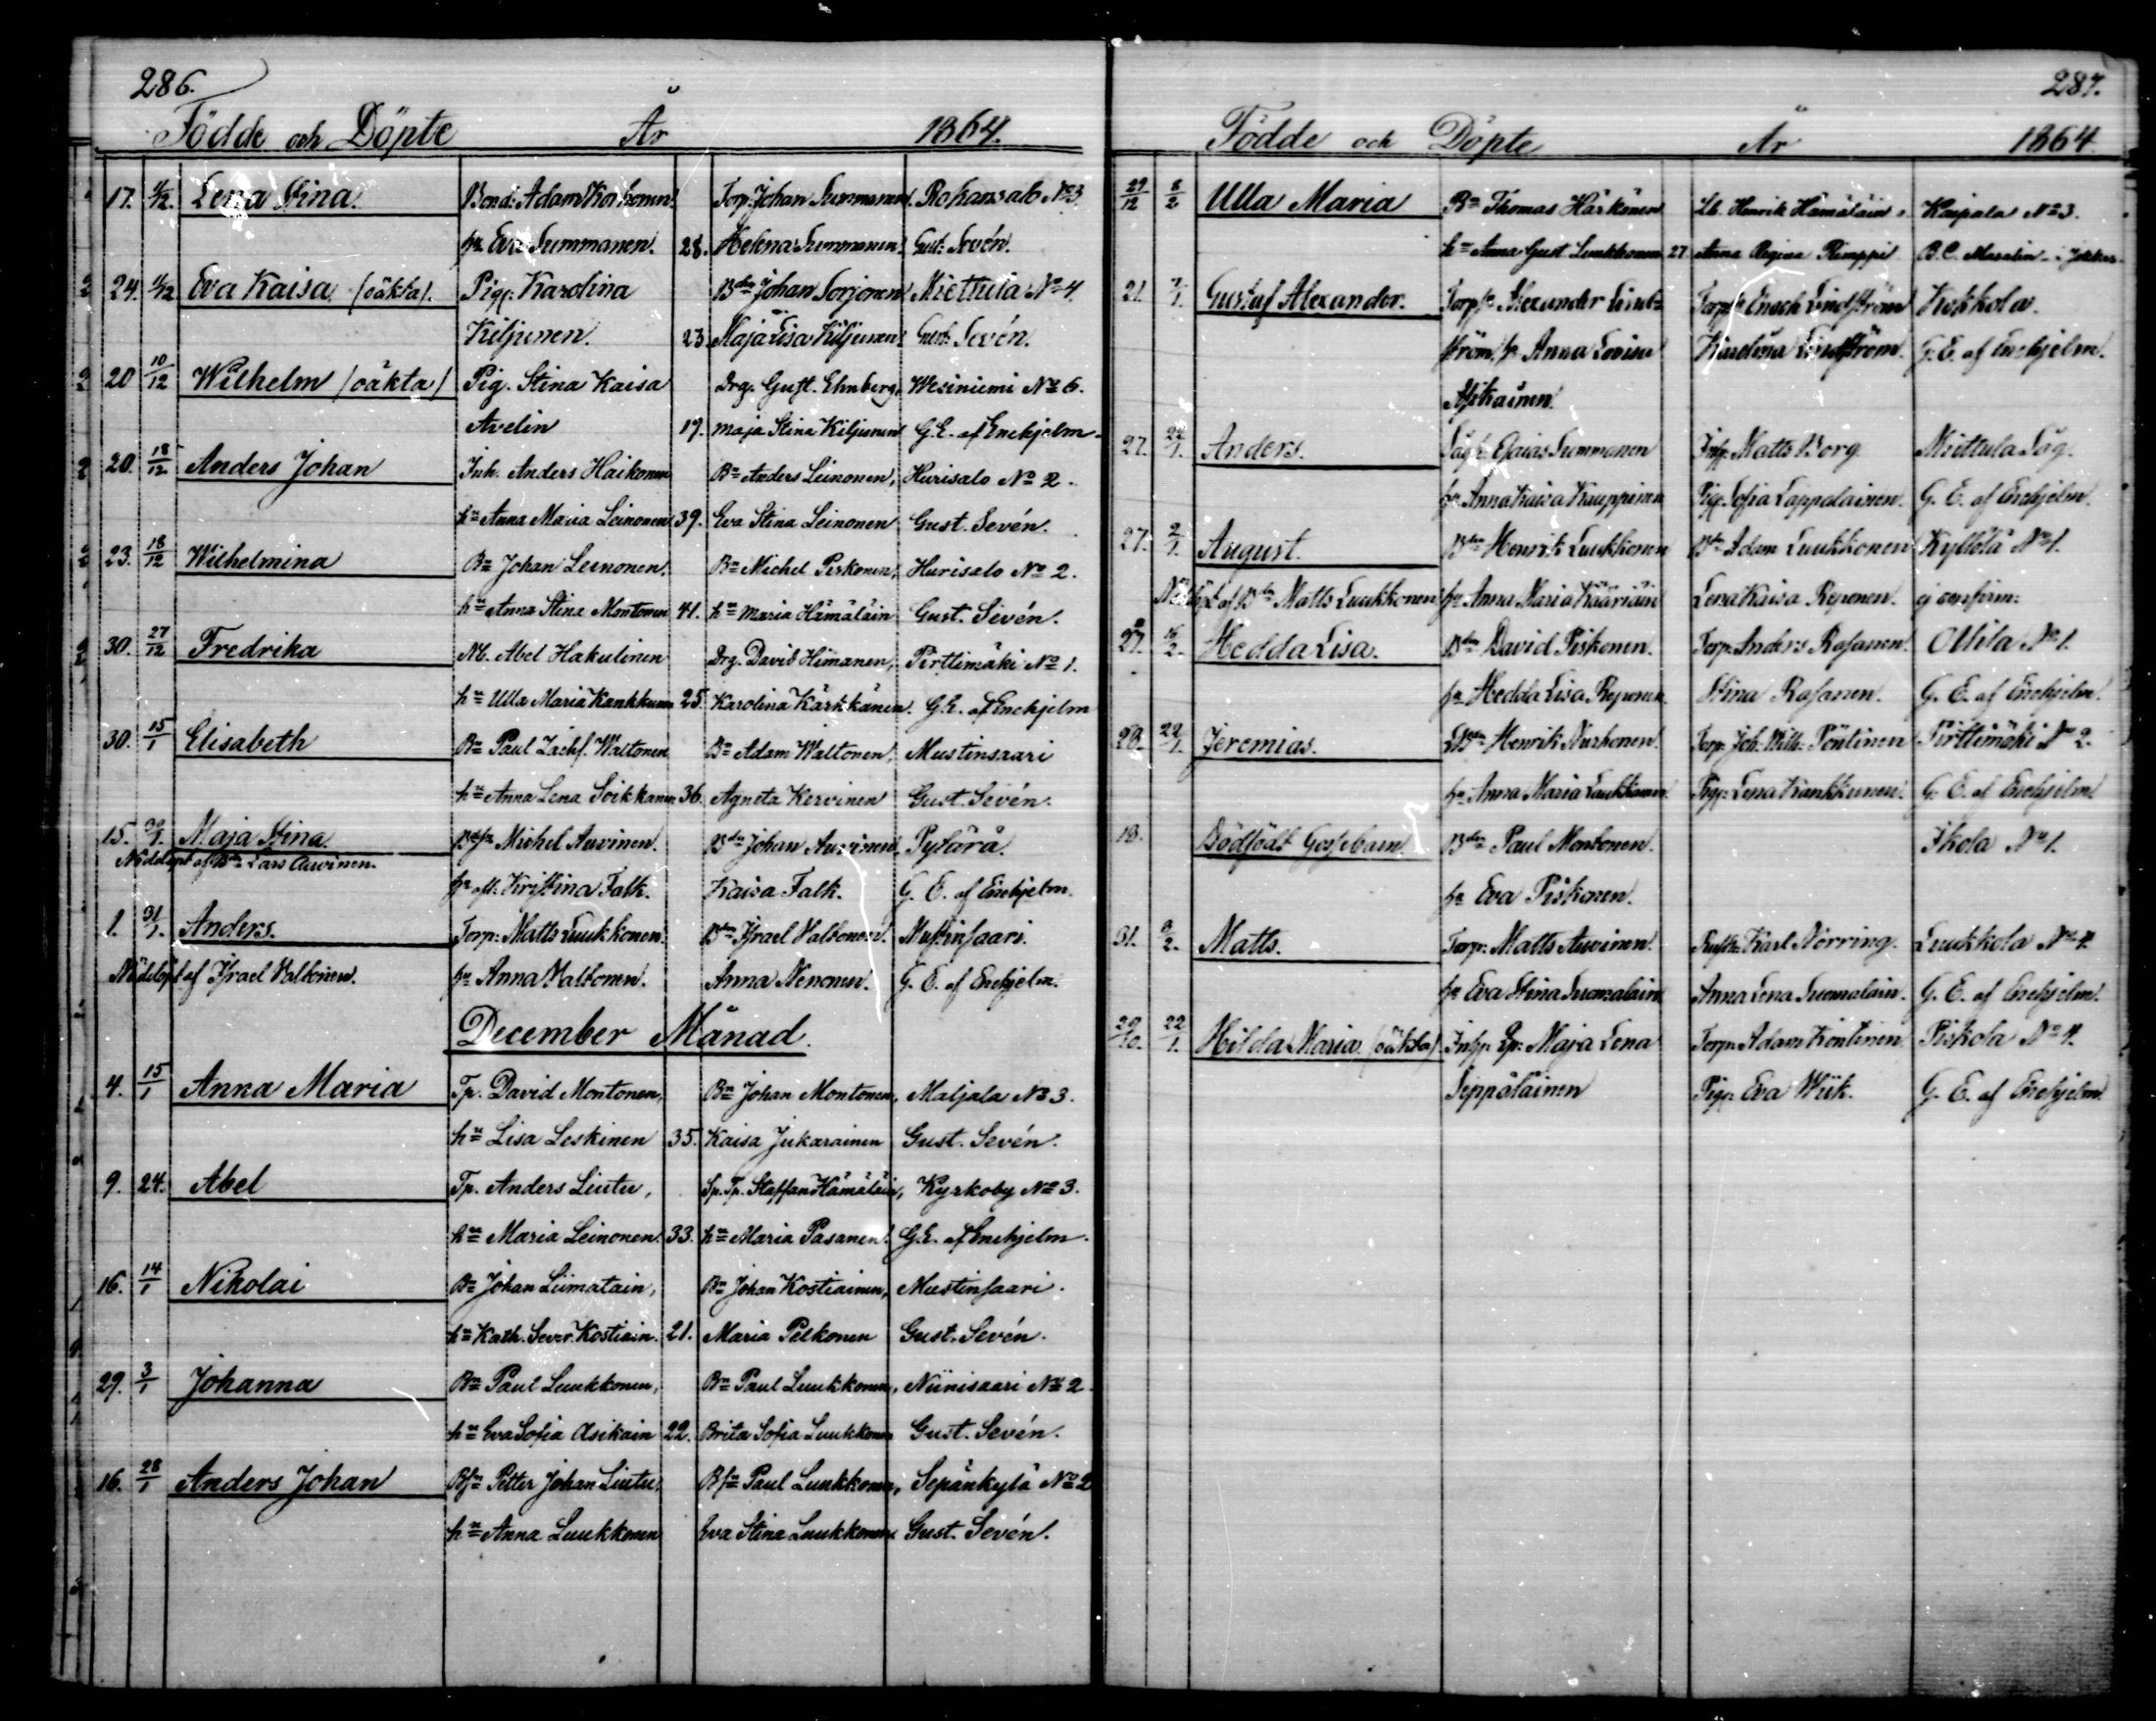 286.
Födde och Döpte År 1864.
17. 4/12. Lena Stina. Bond: Adam Korhonen. Torp: Johan Summanen. Rohansalo No 3.
hu Eva Summanen. 28. Helena Summanen. Gust: Sevón.
24. 4/12 Eva Kaisa. (oäkta). Pig: Karolina Bdn Johan Sorjonen. Miettula No 4.
Kiljunen. 23. Maja Lisa Kiljunen. Gust: Sevón.
20 10/12 Wilhelm (oäkta) Pig. Stina Kaisa Drg. Gust. Ehnberg, Wesiniemi No 6.
Avelin 19. Maja Stina Kiljunen G.E. af Enehjelm.
20. 18/12 Anders Johan Inh. Anders Haikonen Bn Anders Leinonen, Hurisalo No 2.
hu Anna Maria Leinonen 39. Eva Stina Leinonen Gust. Sevén.
23. 18/12 Wilhelmina Bn Johan Leinonen. Bn Michel Piskonen, Hurisalo No 2.
hu Anna Stina Montonen 41. hu Maria Hämäläin Gust. Sevén.
30. 27/12 Fredrika Ab. Abel Hakulinen Drg. David Himanen, Pirttimäki No 1.
hu Ulla Maria Kankkunen 25. Karolina Kärkkänen. G.E. af Enehjelm
30. 15/1 Elisabeth Bn Paul Zachf. Waltonen Bn Adam Waltonen, Mustinsaari
hu Anna Lena Soikkanen 36. Agneta Kervinen Gust. Sevén.
15. Maja Stina. Michel Auvinen. Bdn Johan Auvinen. Pylärä.
Nöddöpt af Bdn Lars Auvinen.
hu Kristina Falk. Kaisa Falk. G. E. af Enehjelm.
1. 31/1. Anders. Torp: Matts Luukkonen. Bdn Israel Valtonen. Mustinsaari.
Nöddöpt af Israel Valtonen. hu Anna Valtonen. Anna Nenonen. G. E. af Enehjelm.
December Månad.
4. 15/1 Anna Maria Tp. David Montonen, Bn Johan Montonen, Maljala No 3.
hu Lisa Leskinen 35. Kaisa Jukarainen Gust. Sevén.
9. 24. Abel Tp. Anders Liutu, Sp. Tp. Staffan Hämäläin, Kyrkoby No 3.
hu Maria Leinonen. 33. hu Maria Pasanen. G.E. af Enehjelm.
16. 14/1 Nikolai Bn Johan Liimatain, Bn Johan Kostiainen, Mustinsaari.
hu Kath. Sever. Kostiain. 21. Maria Pelkonen Gust. Sevén.
29. 3/1 Johanna Bn Paul Luukkonen, Bn Paul Luukkonen, Niinisaari No 2.
hu Eva Sofia Asikain 22. Brita Sofia Luukkonen Gust. Sevén.
16. 28/1 Anders Johan Bsn Petter Johan Liutu, Bsn Paul Luukkonen, Sepänkylä No 2
hu Anna Luukkonen Eva Stina Luukkonen Gust. Sevén.
287.
Födde och Döpte År 1864
29/12 8/2 Ulla Maria Bn Thomas Härkönen Lb. Henrik Hämäläin Kaipala No 3.
hu Anna Gust Luukkonen 27 Anna Regina Rimppi B.C. Maselin i Jokkas
21. 7/1. Gustaf Alexander. Torp: Alexander Lind- Torp: Enoch Lindström Kokkola.
ström, hu Anna Lovisa Karolina Lindström. G. E. af Enehjelm.
Asikainen.
27. 22/1. Anders. Esaias Summanen Inh: Matts Borg Miettula Såg.
hu Anna Kaisa Kauppinen Pig: Sofia Lappalainen. G. E. af Enehjelm.
27. 2/1. August. Bdn Henrik Luukkonen Bdn Adam Luukkonen Kyllölä No 1.
Nöddöpt af Bdn Matts Luukkonen hu Anna Maria Kääriäin Lena Kaisa Reponen. ej confirm:
27. 16/2. Hedda Lisa. Bdn David Piskonen. Torp: Anders Rasanen. Ollila No 1.
hu Hedda Lisa Reponen. Stina Rasanen. G. E. af Enehjelm.
28. 29/1. Jeremias. Henrik Nurhonen. Torp: Joh: Wilh: Pöntinen Pirttimäki No 2.
hu Anna Maria Luukkonen. Pig: Lena Kankkunen. G. E. af Enehjelm.
18. Dödfödt Gossebarn. Bdn Paul Montonen. Ikola No 1.
hu Eva Piskonen.
31. 9/2. Matts. Torp: Matts Auvinen. Karl Nörring. Luukkola No 4.
hu Eva Stina Suomalain Anna Lena Suomalain. G. E. af Enehjelm.
29/10. 22/1. Hilda Maria (oäkta) Maja Lena Torp: Adam Kontinen Piskola No 4.
Seppäläinen Pig: Eva Wiik. G. E. af Enehjelm.